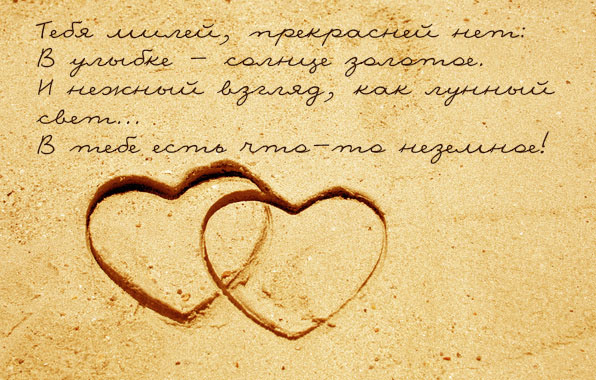 Тебя милей, прекрасней нет:
В улыбке – солнце золотое.
И нежный взгляд, как лунный
свет...
В тебе есть что-то неземное!